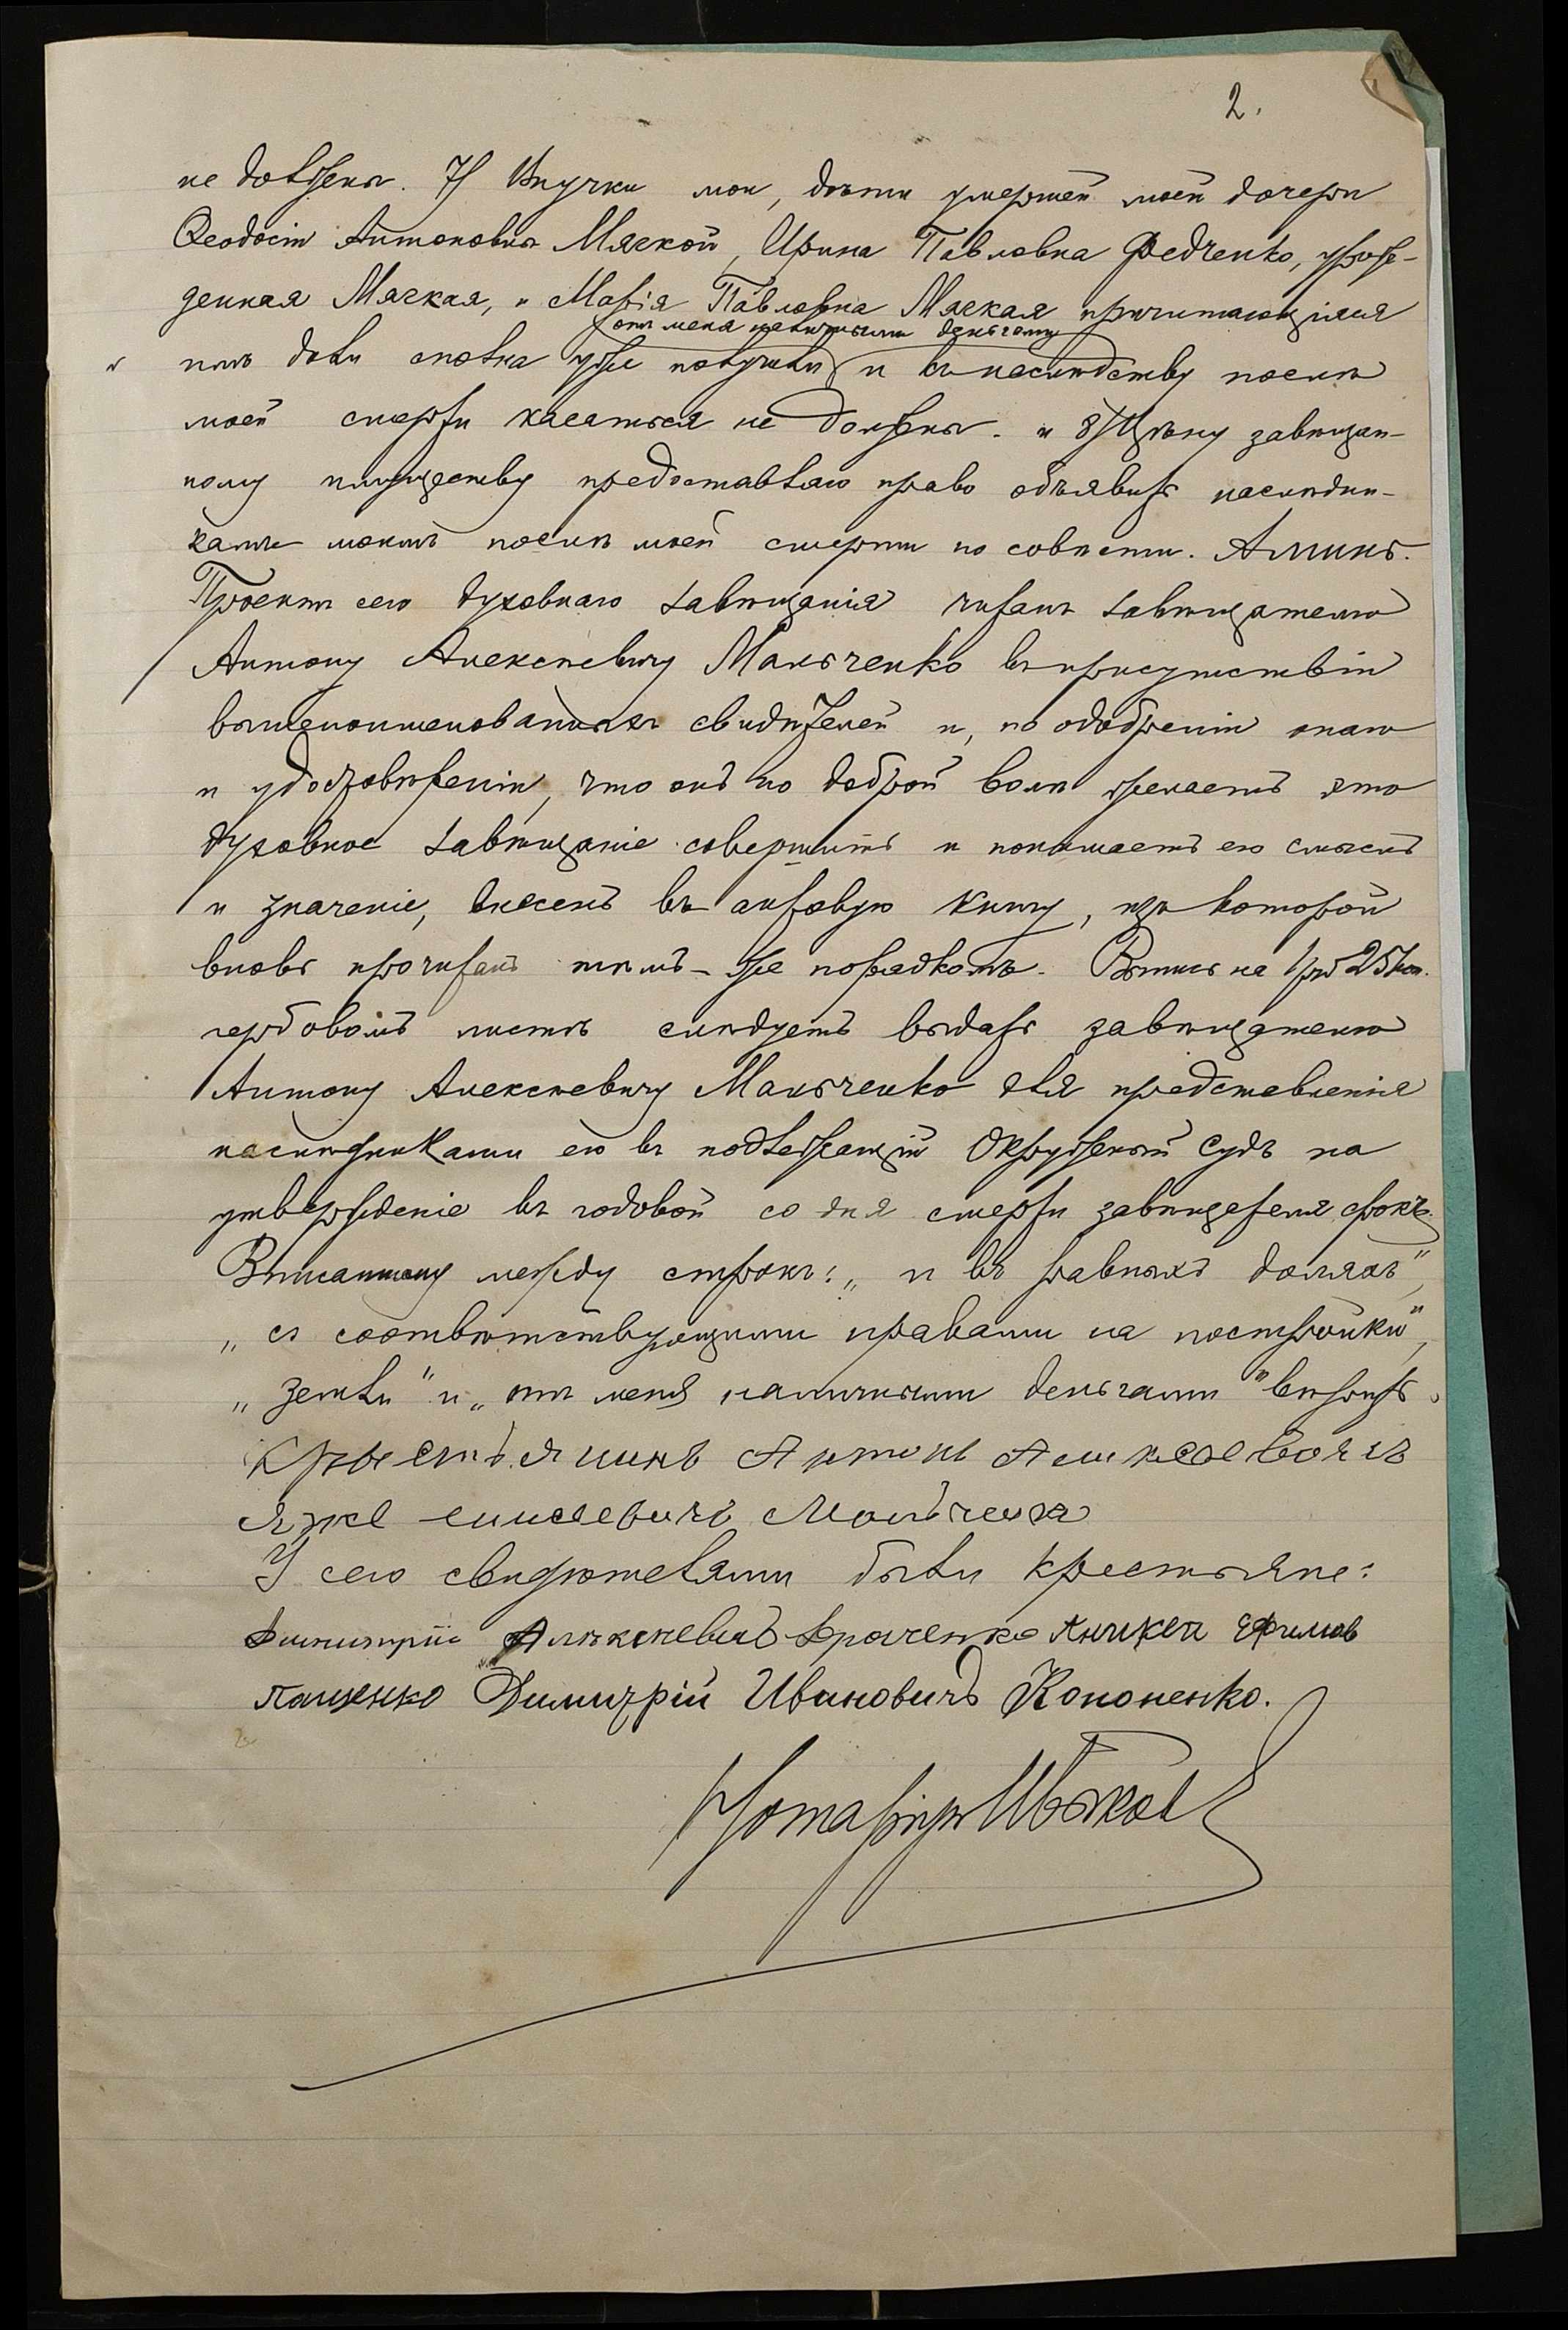 2.
не должны. 7/ Внучки мои, дѣти умершей моей дочери
Ѳеодосіи Антоновны Мягкой, Ирина Павловна Федченко, урож-
денная Мягкая, и Марія Павловна Мягкая причитающіяся
отъ меня наличными деньгами
имъ доли сполна уже получили и къ наслѣдству послѣ
моей смерти касаться не должны. и 8/ Цѣну завѣщан-
ному имуществу предоставляю право объявить наслѣдни-
камъ моимъ послѣ моей смерти по совѣсти. Аминь.
Проектъ сего духовнаго завѣщанія читанъ завѣщателю
Антону Алексѣевичу Мальченко въ присутствіи
вышепоименованныхъ свидѣтелей и, по одобреніи онаго
и удостовѣреніи, что онъ по доброй волѣ желаетъ это
духовное завѣщаніе совершить и понимаетъ его смыслъ
и значеніе, внесенъ въ актовую книгу, изъ которой
вновь прочитанъ тѣмъ-же порядкомъ. Выпись на 1 руб 25 коп.
гербовомъ листѣ слѣдуетъ выдать завѣщателю
Антону Алексѣевичу Мальченко для представленія
наслѣдниками его въ подлежащій Окружный Судъ на
утвержденіе въ годовой со дня смерти завѣщателя срокъ.
Вписанному между строкъ: „и въ равныхъ доляхъ",
„съ соотвѣтствующими правами на постройки",
„земли" и „отъ меня наличными деньгами" вѣрить.
Крыстьянинъ Антонъ
Мальченка
У сего свидѣтелями были крестьяне:
Алѣксѣевичъ Аникей Ефимов
пащенко Димитрій Ивановичъ Кононенко.
Нотаріусъ